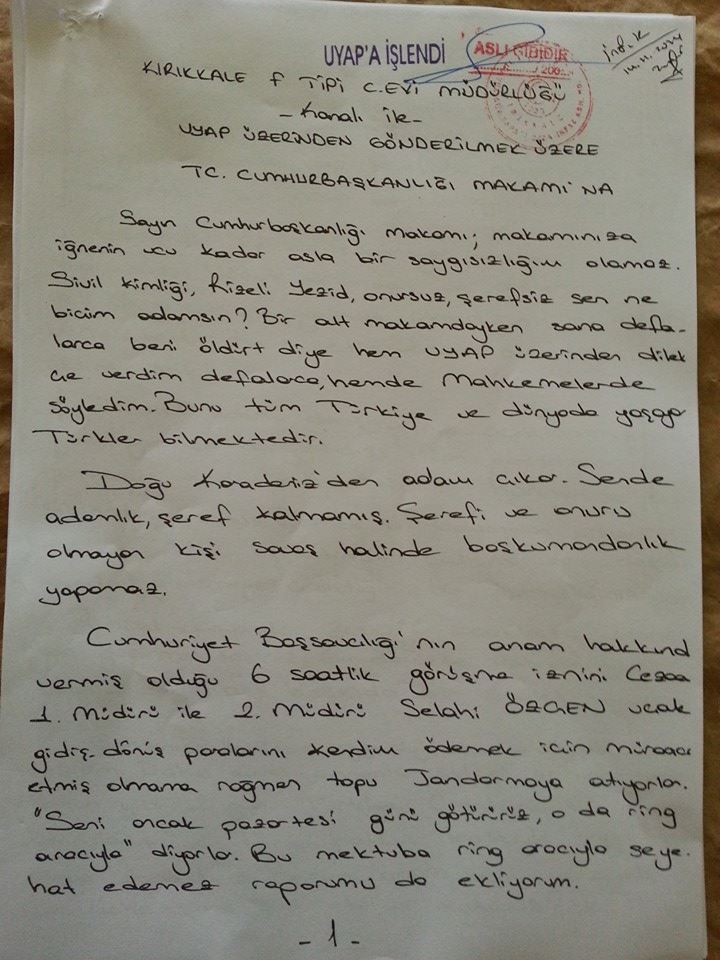 UYAP'A İŞLENDİ
ASLI GİBİDİR
KIRIKKALE F TİPİ C.EVİ MÜDÜRLÜĞÜ
- Kanalı ile -
UYAP ÜZERİNDEN GÖNDERİLMEK ÜZERE
TC. CUMHURBAŞKANLIĞI MAKAMI'NA
Sayın Cumhurbaşkanlığı makamı; makamınıza
iğnenin ucu kadar asla bir saygısızlığım olamaz.
Sivil kimliği, Rizeli Yezid, onursuz, şerefsiz sen ne
biçim adamsın? Bir alt makamdayken sana defa-
larca beni öldürt diye hem UYAP üzerinden dilek
çe verdim defalarca, hemde Mahkemelerde
söyledim. Bunu tüm Türkiye ve dünyada yaşaya
Türkler bilmektedir.
Doğu Karadeniz'den adam çıkar. Sende
adamlık, şeref kalmamış. Şerefi ve onuru
olmayan kişi savaş halinde başkumandanlık
yapamaz.
Cumhuriyet Başsavcılığı'nın anam hakkınd
vermiş olduğu 6 saatlik görüşme iznini Cezae
1. Müdürü ile 2. Müdürü Selahi ÖZGEN uçak
gidiş-dönüş paralarını kendim ödemek için müraca
etmiş olmama rağmen topu Jandarmaya atıyorlar.
"Seni ancak pazartesi günü götürürüz, o da ring
aracıyla" diyorlar. Bu mektuba ring aracıyla seya-
hat edemez raporumu da ekliyorum.
- 1 -